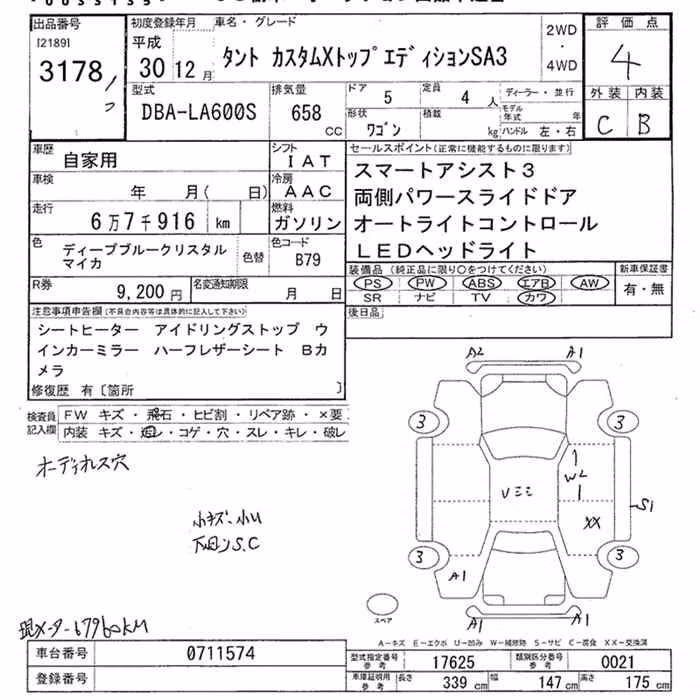 出品番号 初度登録年月 車名・グレード 評価点
[2189] 平成 2WD
3178 30 12月 タント カスタムXトップエディションSA3 ・ 4WD 4
型式 排気量 ドア 5 定員 4 人 ディーラー・並行 外装 内装
DBA-LA600S 658 CC 形状 ワゴン 積載 kg モデル年式 年 C B
ハンドル 左・右
車歴 自家用 シフト IAT セールスポイント(正常に機能するものに限ります)
車検 年 月( 日) 冷房 AAC スマートアシスト3
走行 6万7千916 km 燃料 ガソリン 両側パワースライドドア
オートライトコントロール
色 ディープブルークリスタル 色替 色コード LEDヘッドライト
マイカ B79
装備品(純正品に限り○をつけてください) 新車保証書
PS PW ABS エアB AW 有・無
SR ナビ TV カワ
R券 9,200円 名変通知期限 月 日
後日品
注意事項申告欄(不具合内容等は具体的に記入して下さい)
シートヒーター アイドリングストップ ウ
インカーミラー ハーフレザーシート Bカ
メラ
修復歴 有〔箇所 〕
検査員 FW キズ・飛石・ヒビ割・リペア跡・×要
記入欄 内装 キズ・・コゲ・穴・スレ・キレ・破レ
オーディオレス穴
A2 A1
3 3
W2
S1
XX
小キズ・小U
下回りS.C
3 3
A1
A1 A1
スペア
現メーター67960KM
A-キズ E-エクボ U-凹み W-補修跡 S-サビ C-腐食 XX-交換済
車台番号 0711574 型式指定番号 参考 17625 類別区分番号 参考 0021
登録番号 車庫証明用 参考 長さ 339cm 幅 147cm 高さ 175cm